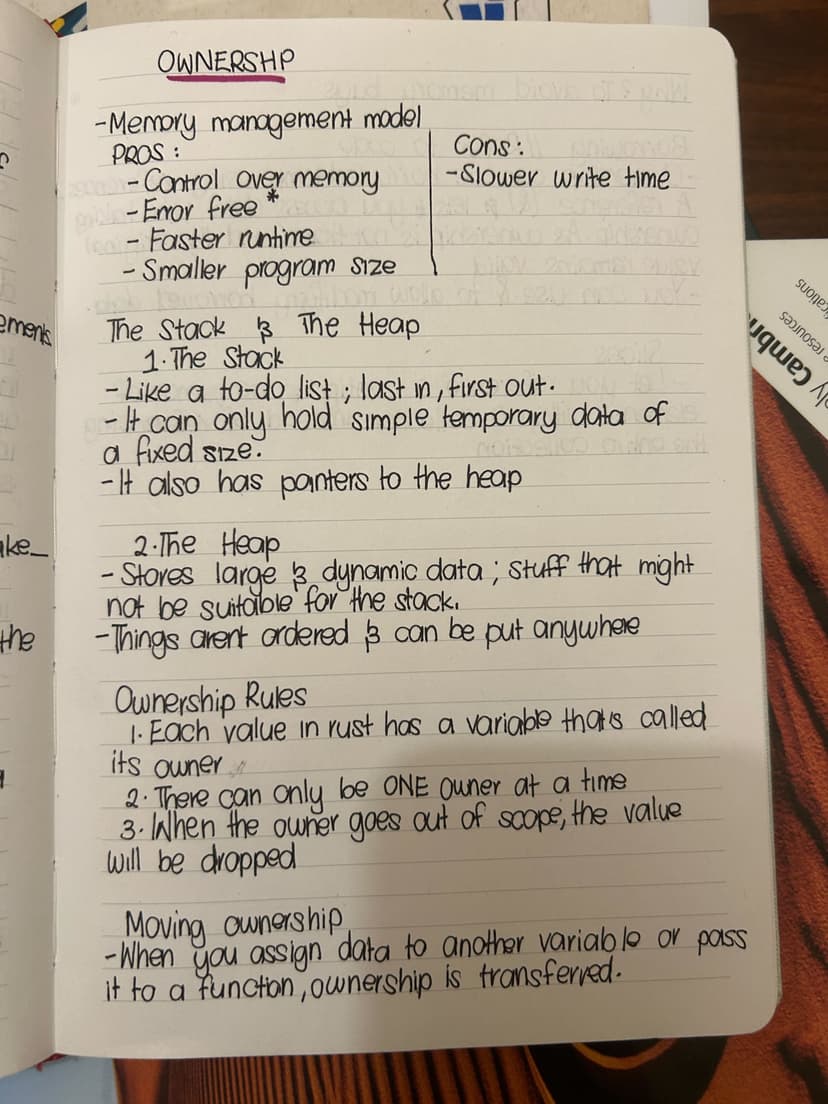 OWNERSHP
-Memory management model
PROS :
- Control over memory
- Error free *
- Faster runtime
- Smaller program size
Cons :
-Slower write time
The Stack & The Heap
1. The Stack
- Like a to-do list ; last in, first out.
- It can only hold simple temporary data of
a fixed size.
- It also has pointers to the heap
2. The Heap
- Stores large & dynamic data ; stuff that might
not be suitable for the stack.
- Things arent ordered & can be put anywhere
Ownership Rules
1. Each value in rust has a variable thats called
its owner
2. There can only be ONE owner at a time
3. When the owner goes out of scope, the value
will be dropped
Moving ownership
-When you assign data to another variable or pass
it to a function, ownership is transferred.
ements
ake_
the
resources